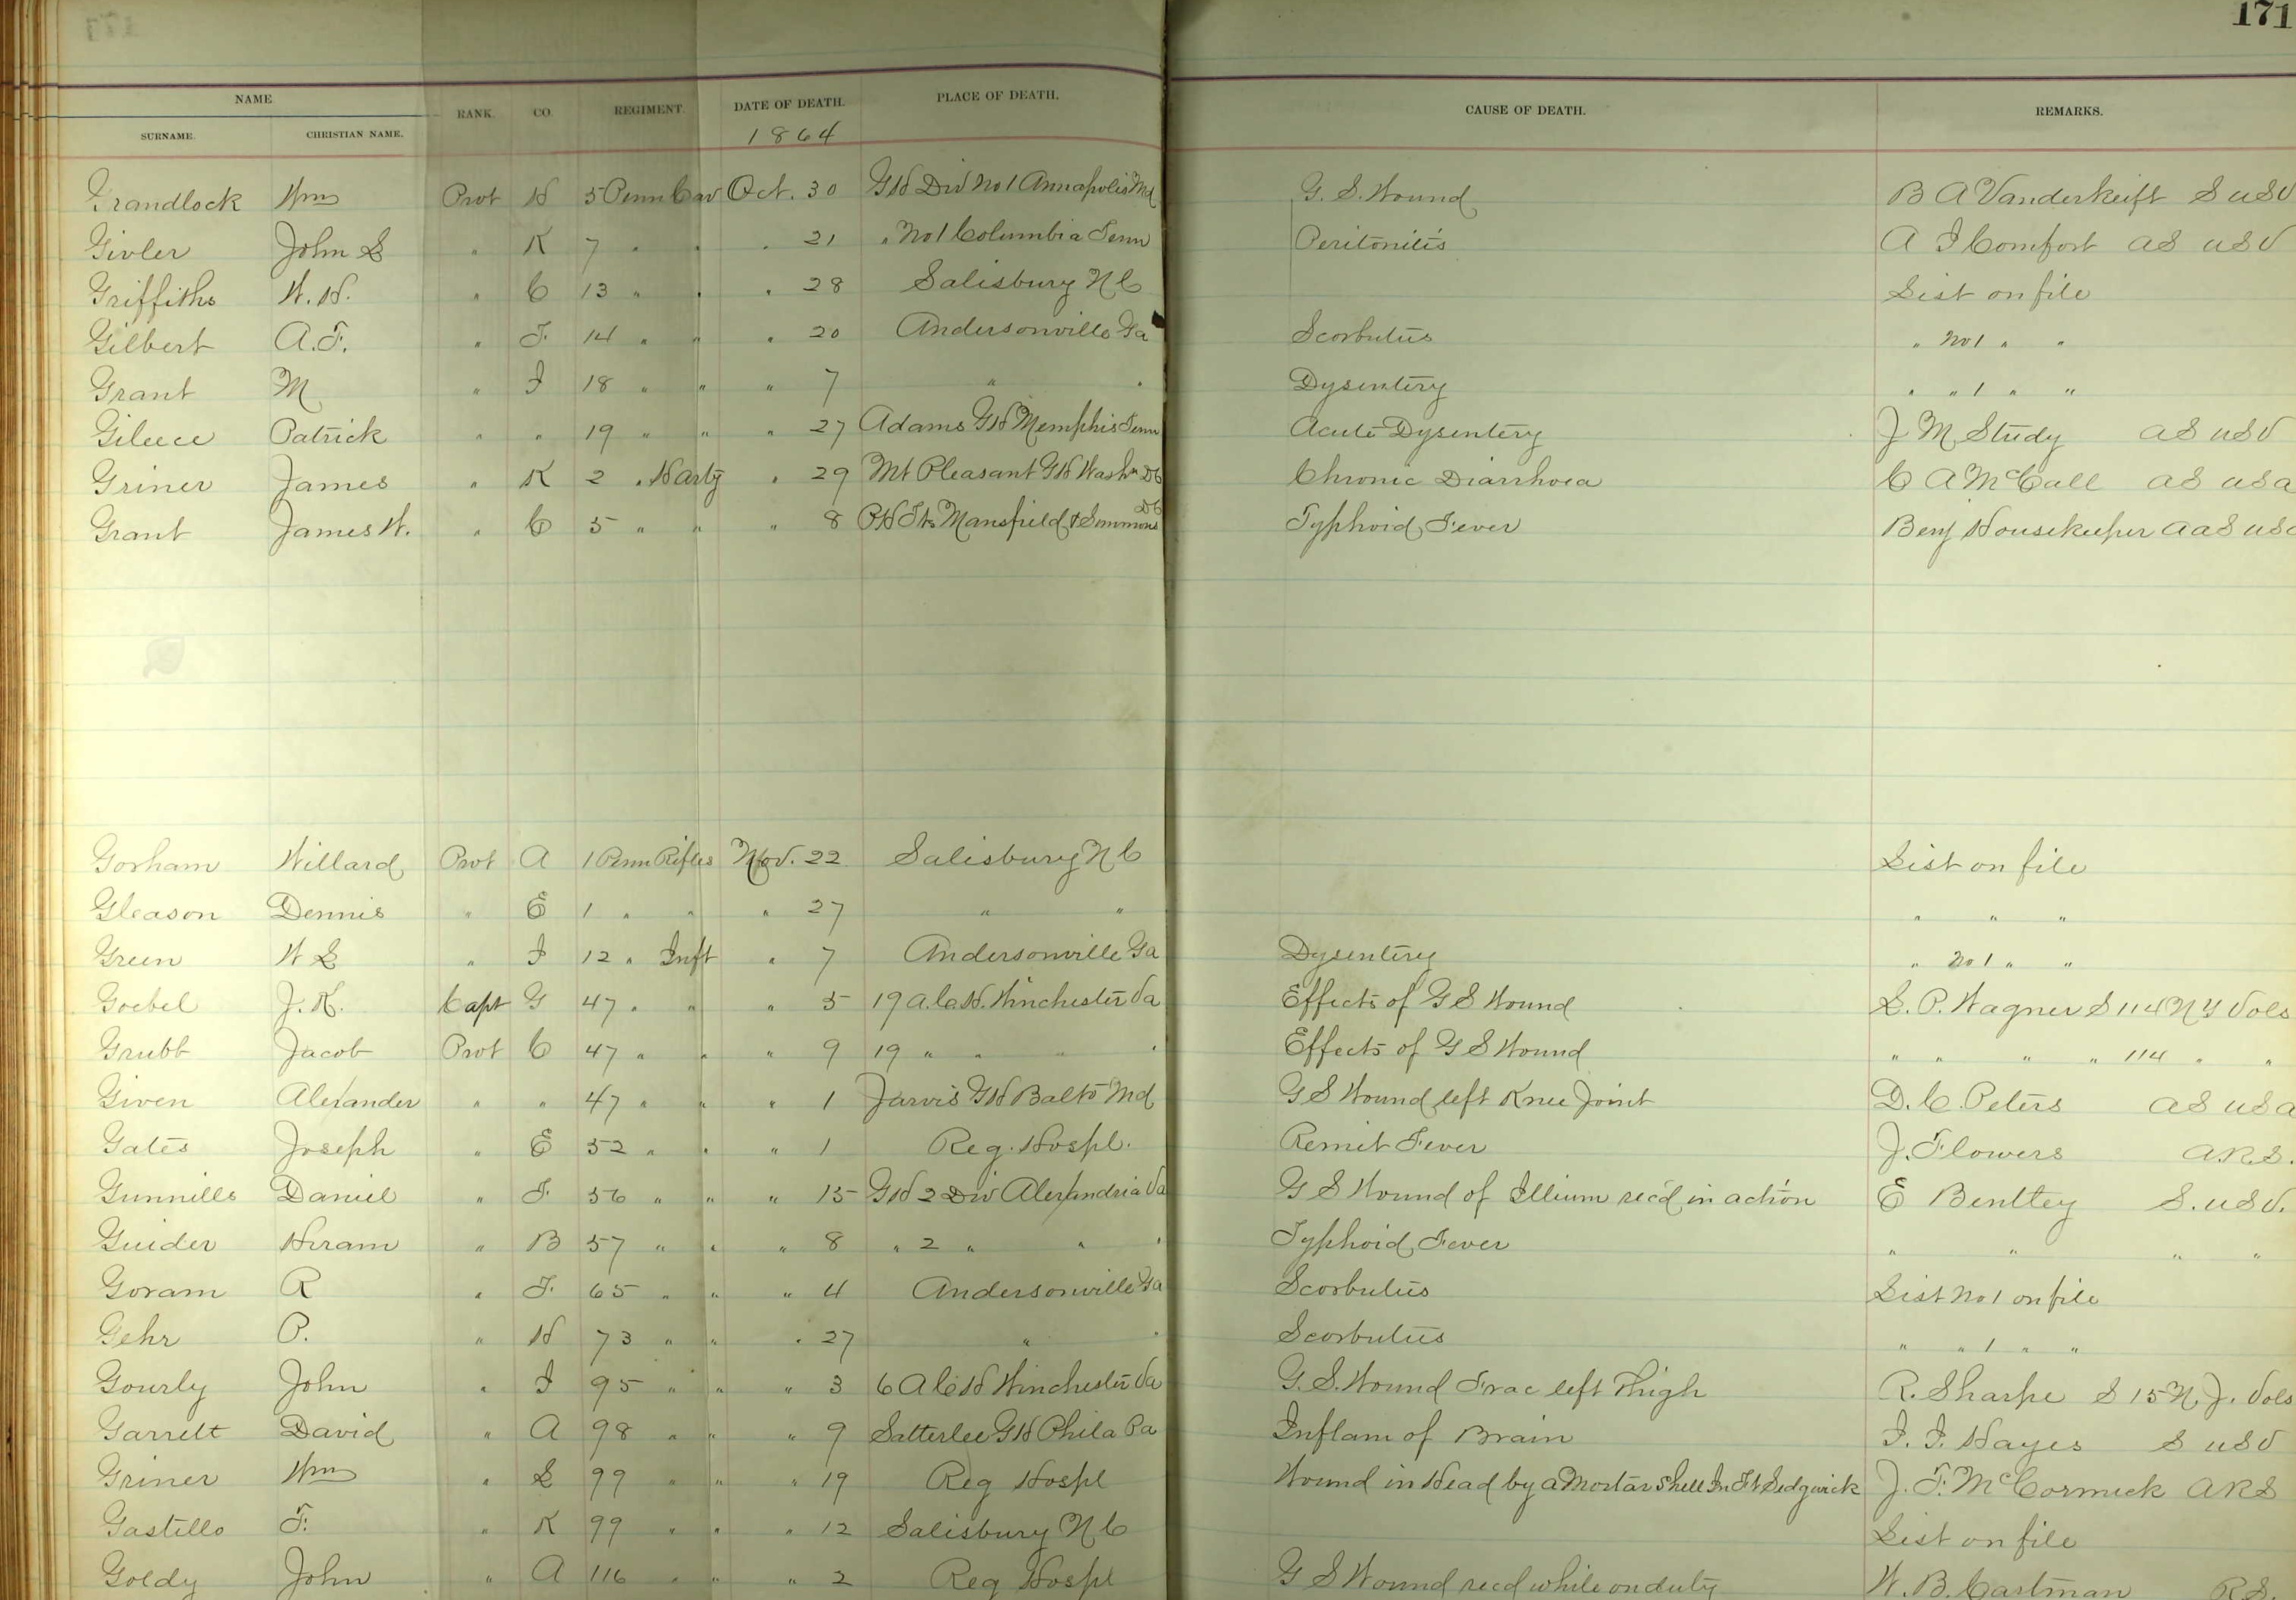 171
NAME RANK. CO. REGIMENT. DATE OF DEATH. PLACE OF DEATH. CAUSE OF DEATH. REMARKS.
SURNAME. CHRISTIAN NAME. 1864
Grandlock Wm Prvt H 5 Penn Cav Oct. 30 GH Div No 1 Annapolis Md G. S. Wound B A Vanderkieft S USV
Givler John S " K 7 " " " 21 " No 1 Columbia Tenn Peritonitis A I Comfort AS USV
Griffiths W. H. " C 13 " " " 28 Salisbury N C List on file
Gilbert A. F. " F. 14 " " " 20 Andersonville Ga Scorbutus " No 1 " "
Grant M " I 18 " " " 7 " " Dysentery " " 1 " "
Gileece Patrick " " 19 " " " 27 Adams GH Memphis Tenn Acute Dysentery J M Study AS USV
Griner James " K 2 " H Arty " 29 Mt Pleasant GH Washn DC Chronic Diarrhoea C A McCall AS USA
Grant James W. " C 5 " " " 8 PH Fts Mansfield & Simmons DC Typhoid Fever Benj Housekeeper AAS USA
Gorham Willard Prvt A 1 Penn Rifles Nov. 22 Salisbury N C List on file
Gleason Dennis " E 1 " " " 27 " " " " "
Green W S " I 12 " Inft " 7 Andersonville Ga Dysentery " No 1 " "
Goebel J. K. Capt G 47 " " " 5 19 A.C.H. Winchester Va Effects of G S Wound L. P. Wagner S 114 N Y Vols
Grubb Jacob Prvt C 47 " " " 9 19 " " " " Effects of G S Wound " " " " 114 " "
Given Alexander " " 47 " " " 1 Jarvis GH Balto Md G S Wound left Knee Joint D. C. Peters AS USA
Gates Joseph " E 52 " " " 1 Reg. Hospl. Remit Fever J. Flowers A.R.S.
Gunnills Daniel " F. 56 " " " 15 GH 2 Div Alexandria Va G S Wound of Illium recd in action E Bentley S. USV.
Guider Hiram " B 57 " " " 8 " 2 " " " Typhoid Fever " " " "
Goram R " F. 65 " " " 4 Andersonville Ga Scorbutus List No 1 on file
Gehr P. " H 73 " " " 27 " " Scorbutus " " 1 " "
Gourly John " I 95 " " " 3 6 A C H Winchester Va G. S. Wound Frac left Thigh R. Sharpe S 15 N. J. Vols
Garrett David " A 98 " " " 9 Satterlee GH Phila Pa Inflam of Brain I. I. Hayes S USV
Griner Wm " L 99 " " " 19 Reg Hospl Wound in Head by a Mortar Shell In Ft Sedgwick J. F. McCormick ARS
Gastello F. " K 99 " " " 12 Salisbury N C List on file
Goldy John " A 116 " " " 2 Reg Hospl G S Wound recd while on duty W. B. Cartman R.S.